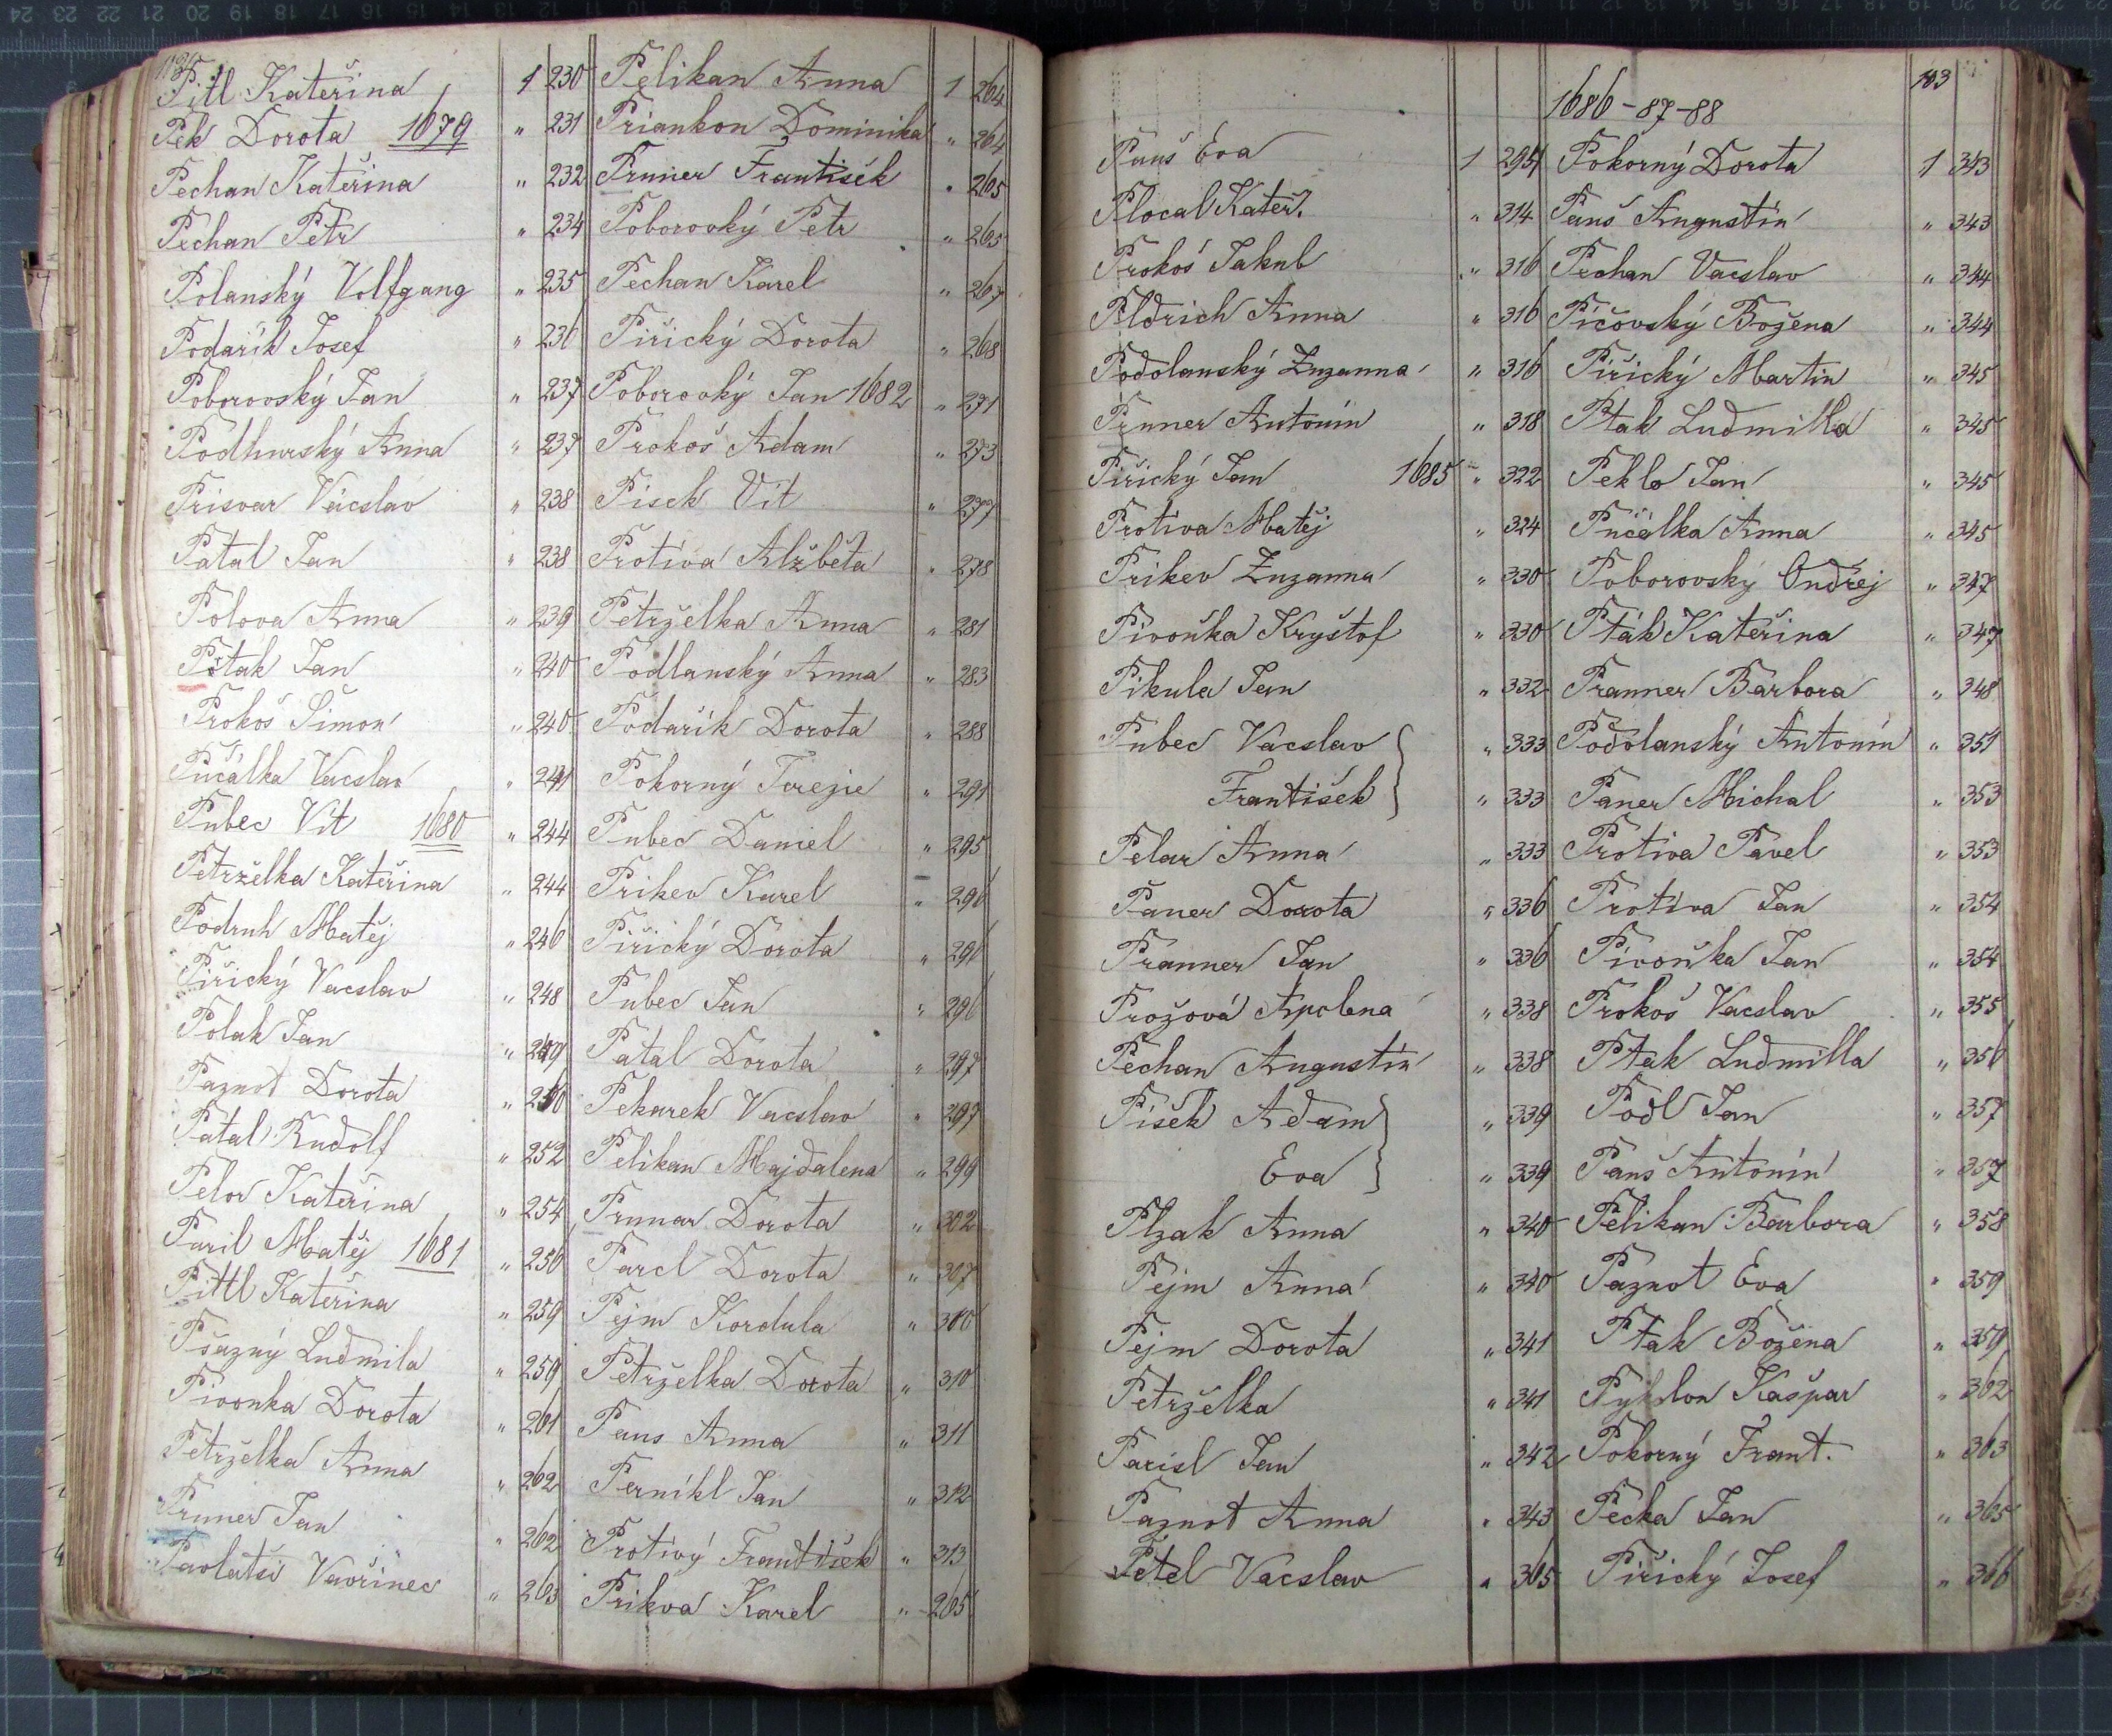 Pitl Kateřina 1 230
Pek Dorota 1679 " 231
Pechan Kateřina " 232
Pechan Petr " 234
Polanský Volfgang " 235
Podařik Josef " 236
Poborovský Jan " 237
Podhurský Anna " 237
Prisvar Václav " 238
Patal Jan " 238
Polova Anna " 239
Ptak Jan " 240
Prokoš Šimon " 240
Pučálka Vacslav " 241
Pubec Vít 1680 " 244
Petrželka Kateřina " 244
Podruh Matěj " 246
Piřický Vacslav " 248
Polak Jan " 249
Paznot Dorota " 250
Patal Rudolf " 252
Pelor Kateřina " 254
Paril Matěj 1681 " 256
Pittl Kateřina " 259
Pšazný Ludmila " 259
Pivonka Dorota " 261
Petrželka Anna " 262
Pruner Jan " 262
Vavřinec " 263
Pelikan Anna 1 264
Priankon Dominika " 264
Pruner František " 265
Poborovký Petr " 265
Pechan Karel " 267
Piřický Dorota " 268
Poborovký Jan 1682 " 271
Prokoš Adam " 273
Pisek Vit " 277
Protiva Alžběta " 278
Petrželka Anna " 281
Podlanský Anna " 283
Podařik Dorota " 288
Pokorný Terezie " 291
Pubec Daniel " 295
Prikev Karel " 296
Piřický Dorota " 296
Pubec Jan " 296
Patal Dorota " 297
Pekarek Vacslav " 297
Pelikan Majdalena " 299
Prunar Dorota " 302
Parcl Dorota " 307
Pejm Kordula " 310
Petrželka Dorota " 310
Paus Anna " 311
Pernikl Jan " 312
Protivý František " 313
Prikva Karel " 265
103
Pauš Eva 1 295
Plocal Kateř. " 314
Prokoš Jakub " 316
Pldrich Anna " 316
Podolanský Zuzanna " 316
Pruner Antonín " 318
Piřický Jan 1685 " 322
Protiva Matěj " 324
Prikev Zuzanna " 330
Pivoňka Kryštof " 330
Pikula Jan " 332
Pubec Vacslav " 333
František " 333
Pelar Anna " 333
Paner Dorota " 336
Pranner Jan " 336
Prožová Apolena " 338
Pechan Augustin " 338
Pisek Adam " 339
Eva " 339
Plzak Anna " 340
Pejm Anna " 340
Pejm Dorota " 341
Petrželka " 341
Parisl Jan " 342
Paznot Anna " 343
Petel Vacslav " 365
1686-87-88
Pokorný Dorota 1 343
Pauš Augustin " 343
Pechan Vacslav " 344
Pičovský Božena " 344
Piřický Martin " 345
Ptak Ludmilla " 345
Peklo Jan " 345
Pučálka Anna " 345
Poborovský Ondřej " 347
Pták Kateřina " 347
Pranner Barbora " 348
Podolanský Antonín " 351
Paner Michal " 353
Protiva Pavel " 353
Protiva Jan " 354
Pivoňka Jan " 354
Prokoš Vacslav " 355
Ptak Ludmilla " 356
Podl Jan " 357
Pauš Antonín " 357
Pelikan Barbora " 358
Paznot Eva " 359
Ptak Božena " 359
Kašpar " 362
Pokorný Frant. " 363
Pecka Jan " 365
Piřický Josef " 366